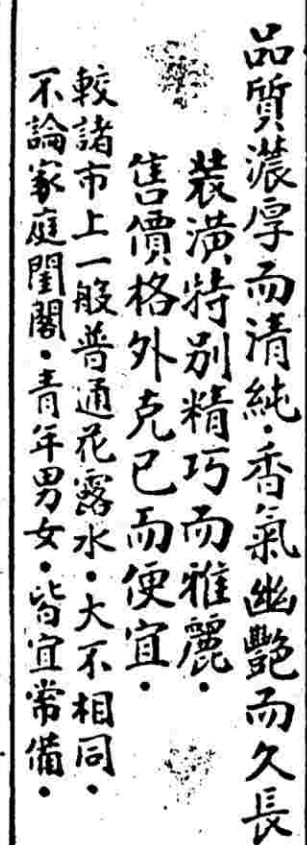 品質濃厚而清純·香氣幽艷而久長
裝潢特別精巧而雅麗·
售價格外克己而便宜·
較諸市上一般普通花露水·大不相同·
不論家庭閨閣·青年男女·皆宜常備·